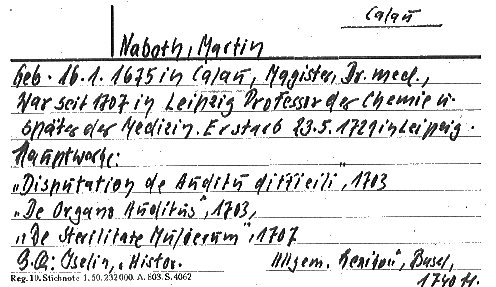 Calau
Naboth, Martin
Geb. 16.1.1675 in Calau, Magister, Dr. med.,
War seit 1707 in Leipzig Professor der Chemie u.
später der Medizin. Er starb 23.5.1721 in Leipzig.
Hauptwerke:
"Disputation de Auditu difficili", 1703
"De Organo Auditus", 1703,
"De Sterilitate Mulierum", 1707
B.Q: Iselin, "Histor. Allgem. Lexikon", Basel,
Reg. 10. Stichnote 1. 50. 232000. A. 803. S. 4062
1740 ff.